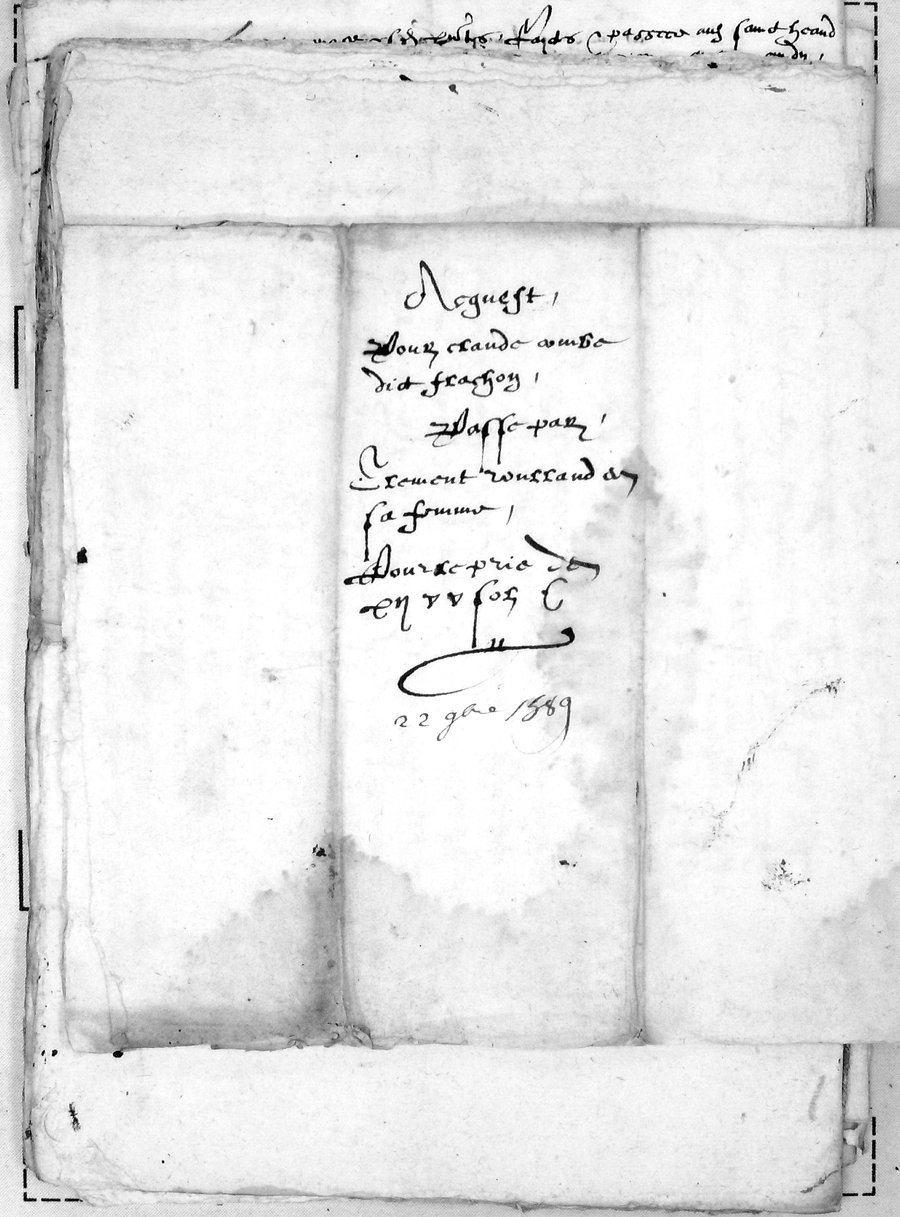 faicts & passées aud sainct heand
Acquest,
Pour claude combe
dict frachon,
Passe par,
Clement roulland et
sa femme,
Pour le pris de
xii v v solz
22 9bre 1589